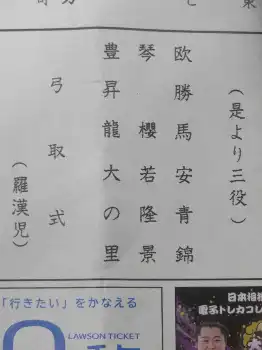 (是より三役)
欧勝馬安青錦
琴櫻若隆景
豊昇龍大の里
弓取式
(羅漢児)
「行きたい」をかなえる
LAWSON TICKET
日本相撲
電子トレカコレ